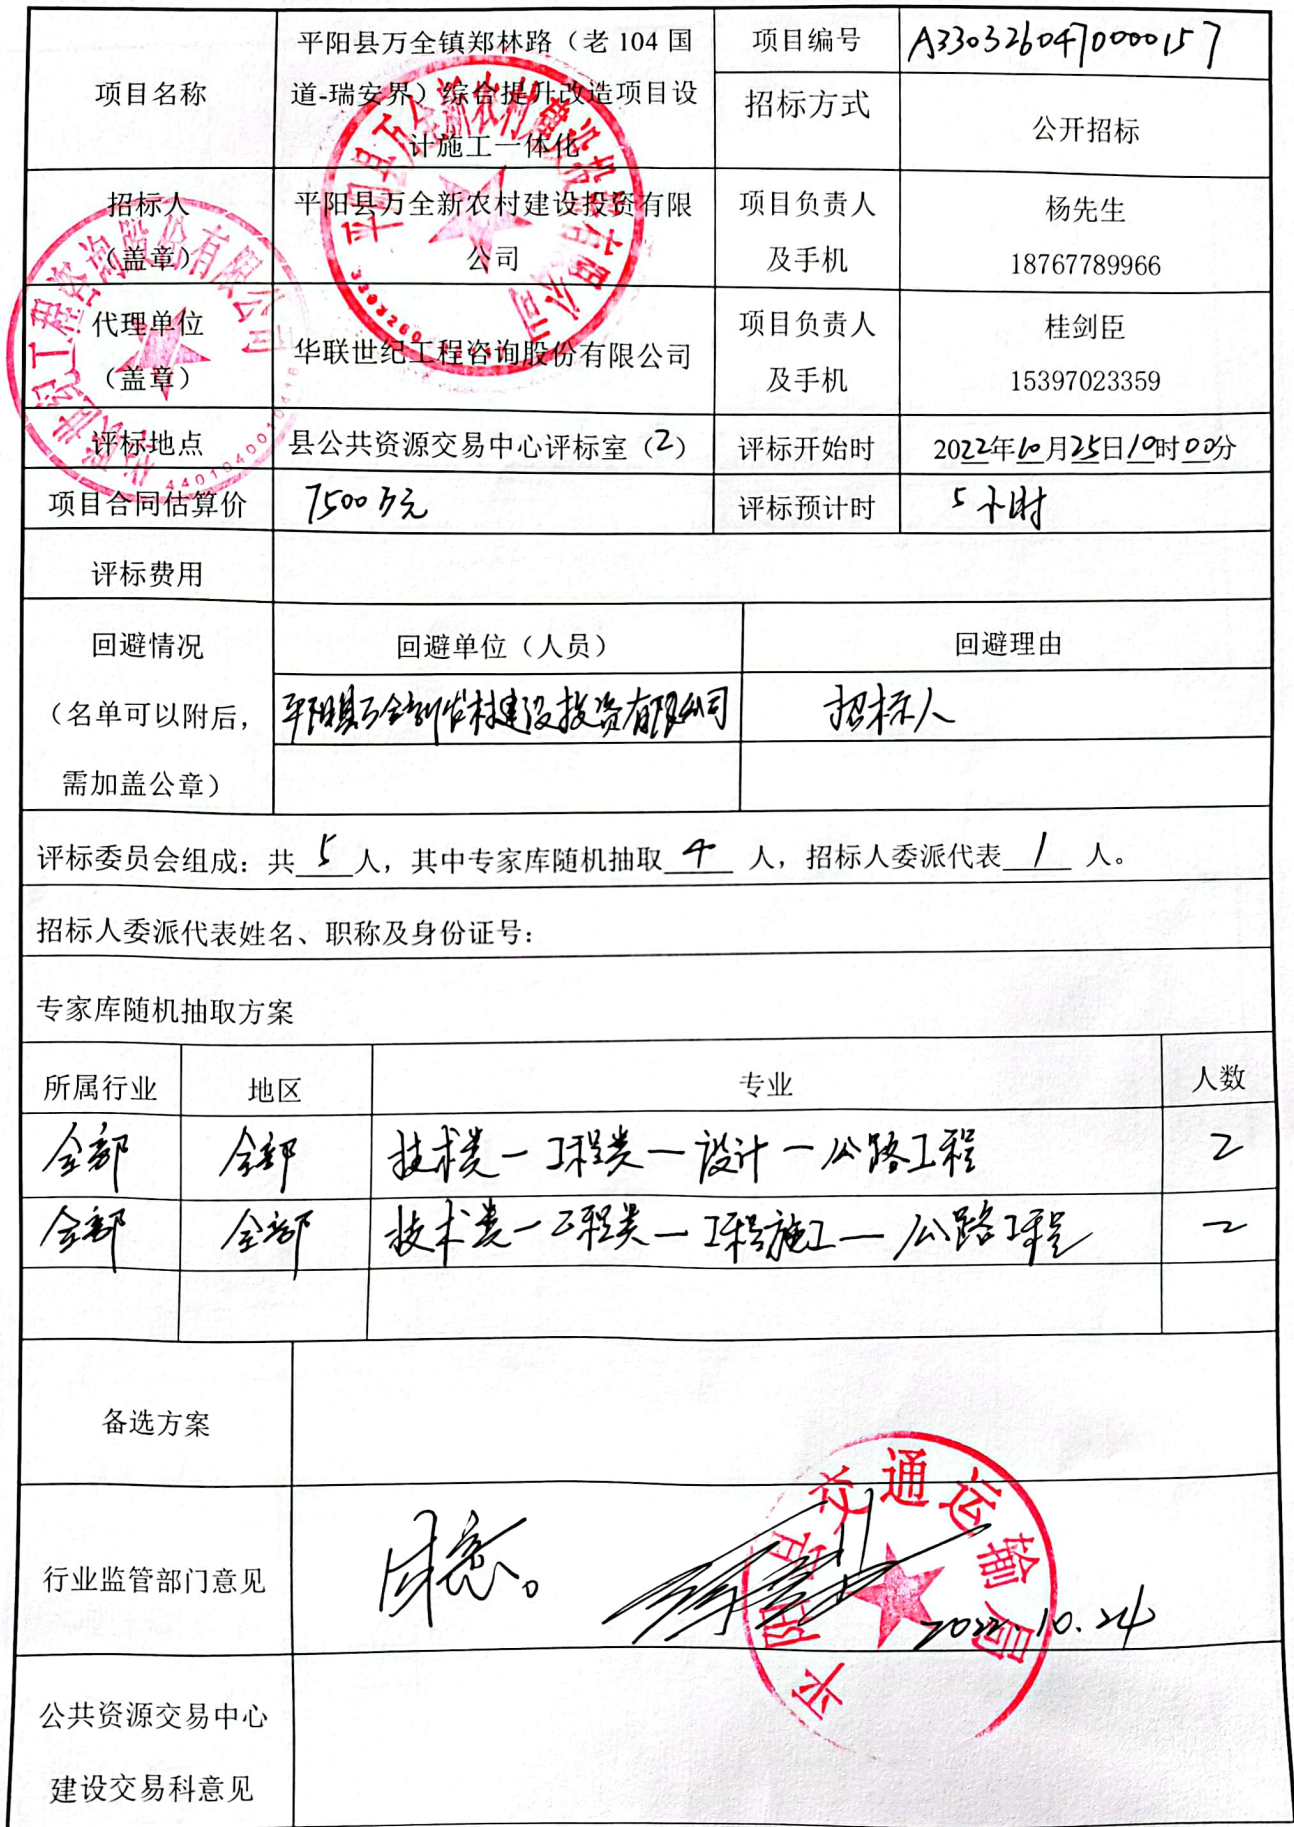 项目名称
平阳县万全镇郑林路（老 104 国
道-瑞安界）综合提升改造项目设
计施工一体化
项目编号
A3303260470000157
招标方式
公开招标
招标人
（盖章）
平阳县万全新农村建设投资有限
公司
项目负责人
及手机
杨先生
18767789966
代理单位
（盖章）
华联世纪工程咨询股份有限公司
项目负责人
及手机
桂剑臣
15397023359
评标地点
县公共资源交易中心评标室（2）
评标开始时
2022年10月25日10时00分
项目合同估算价
7500万元
评标预计时
5小时
评标费用
回避情况
（名单可以附后，
需加盖公章）
回避单位（人员）
回避理由
平阳县万全新农村建设投资有限公司
招标人
评标委员会组成：共 5 人，其中专家库随机抽取 4 人，招标人委派代表 1 人。
招标人委派代表姓名、职称及身份证号：
专家库随机抽取方案
所属行业
地区
专业
人数
全部
全部
技术类一工程类一设计一公路工程
2
全部
全部
技术类一工程类一工程施工一公路工程
2
备选方案
行业监管部门意见
同意。
2022.10.24
公共资源交易中心
建设交易科意见
平阳县万全新农村建设投资有限公司
华联世纪工程咨询股份有限公司
平阳县交通运输局